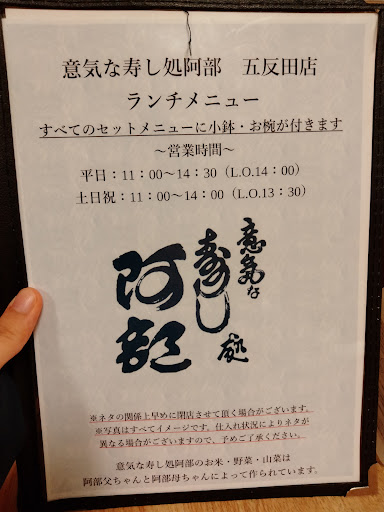 意気な寿し処阿部　五反田店
ランチメニュー
すべてのセットメニューに小鉢・お椀が付きます
～営業時間～
平日：11：00～14：30（L.O.14：00）
土日祝：11：00～14：00（L.O.13：30）
意気な
寿し処
阿部
※ネタの関係上早めに閉店させて頂く場合がございます。
※写真はすべてイメージです。仕入れ状況によりネタが
異なる場合がございますので、予めご了承ください。
意気な寿し処阿部のお米・野菜・山菜は
阿部父ちゃんと阿部母ちゃんによって作られています。